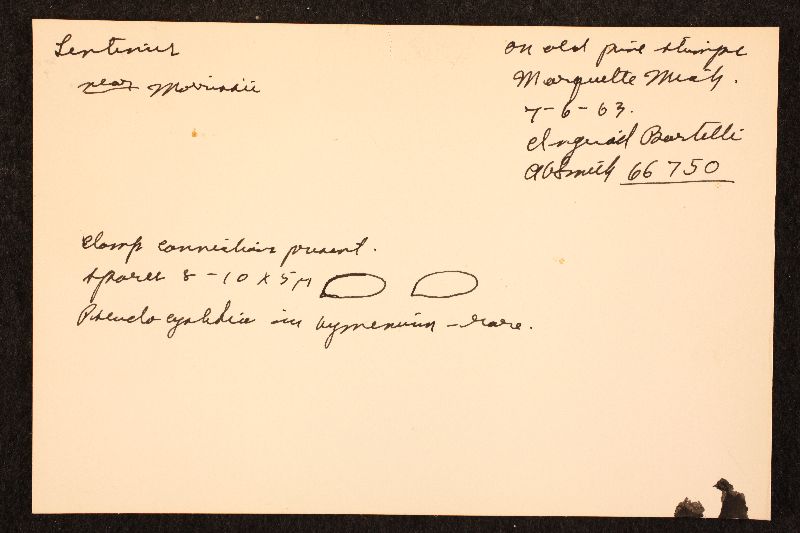 Lentinus
near Morrisii
on old pine stumps
Marquette Mich.
7-6-63.
Ingrid Bartelli
AHSmith 66750
clamp connections present.
spores 8-10 x 5µ
Pseudocystidia in hymenium - rare.